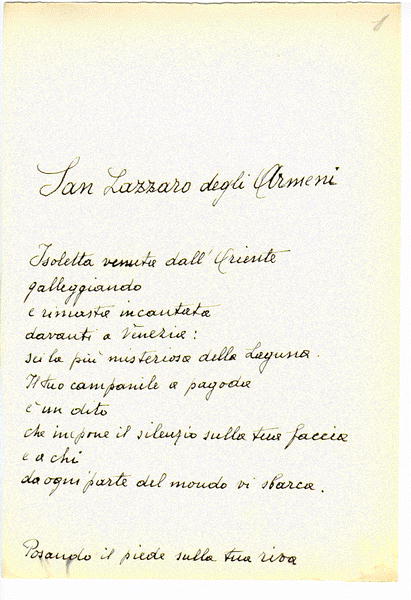 1
San Lazzaro degli Armeni
Isoletta venuta dall'Oriente
galleggiando
e rimasta incantata
davanti a Venezia:
sei la più misteriosa della Laguna.
Il tuo campanile a pagoda
è un dito
che impone il silenzio sulla tua faccia
e a chi
da ogni parte del mondo vi sbarca.
Posando il piede sulla tua riva